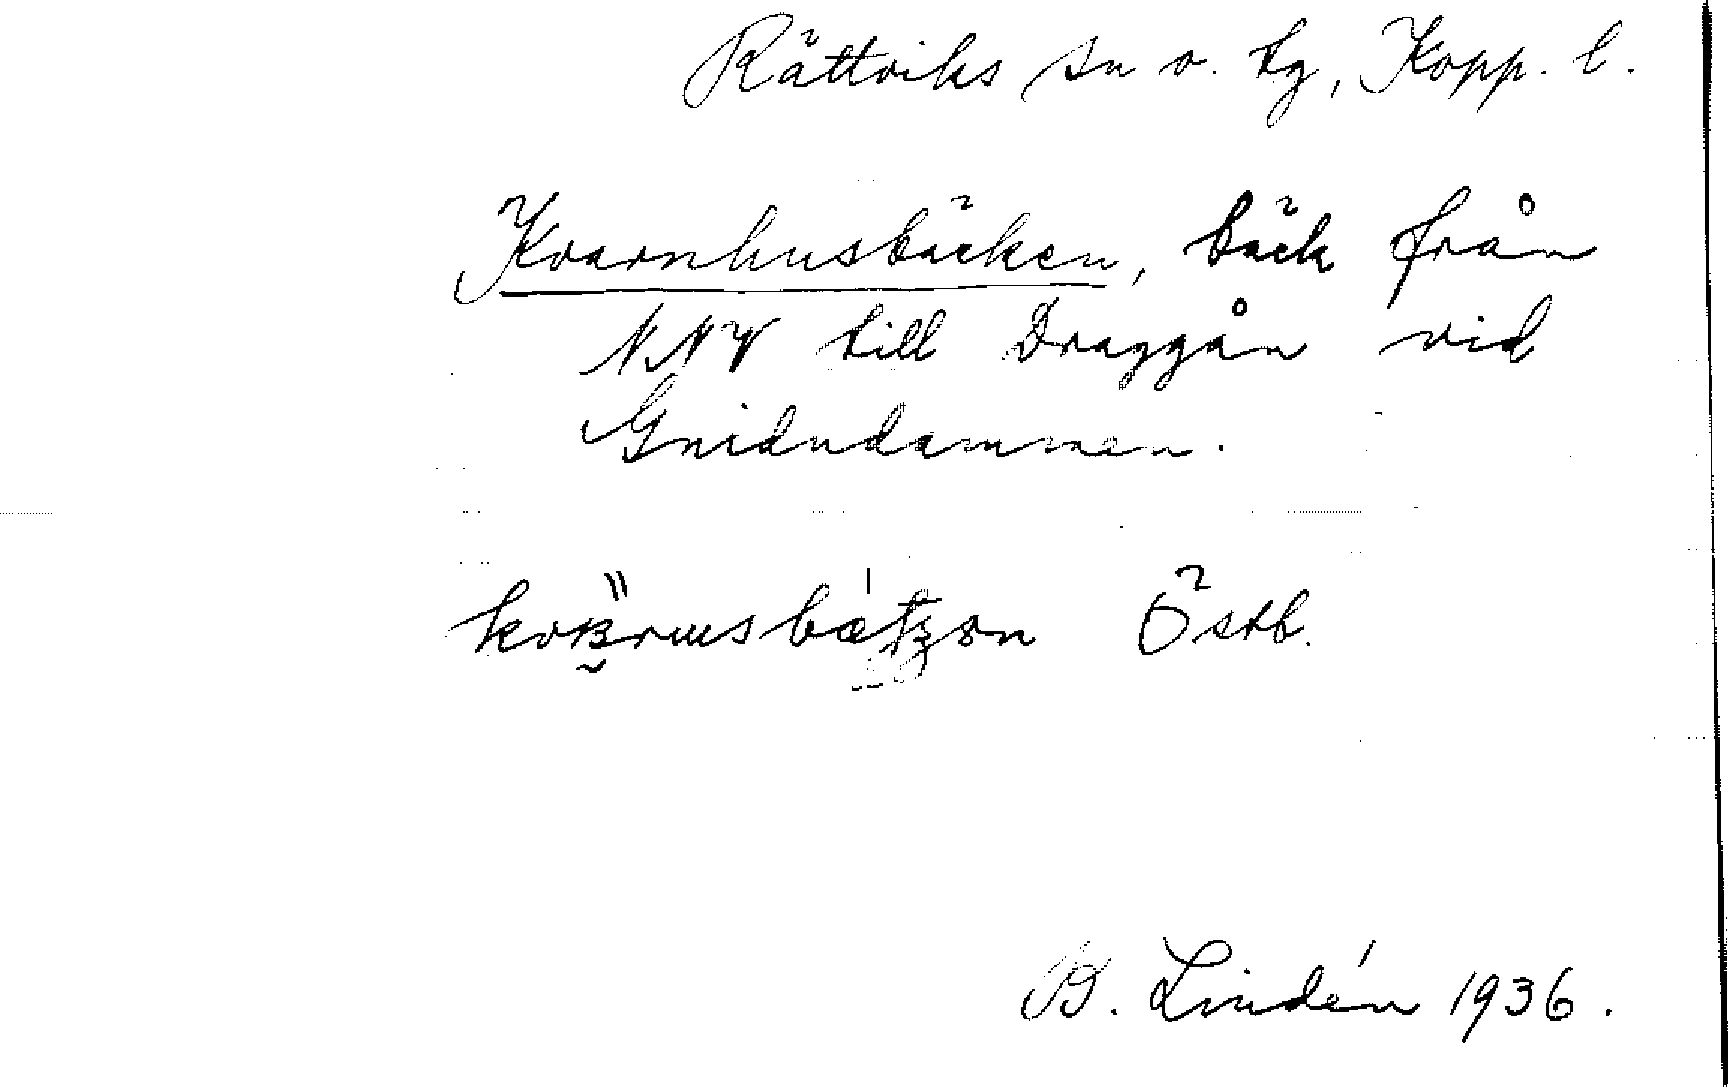 Rättviks sn o. tg, Kopp. l.
Kvarnhusbäcken, bäck från
NNV till Draggån vid
Gnidudammen.
Östb.
B. Lindén 1936.